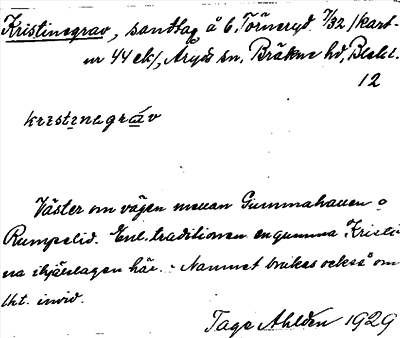 Kristinegrav, sandtag å 6. Törneryd 7/32 /kart-
nr 44 ek/, Aryds sn, Bräkne hd, Blek l.
12
krestinegráv
Väster om vägen mellan Gummahauen o
Rumpelid. Enl. traditionen en gumma Kristi
na ihjälslagen här. - Namnet brukas också om
lht. invid.
Tage Ahldén 1929